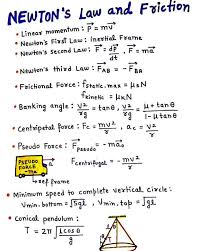 NEWTON's Law and Friction
• Linear momentum : P⃗ = mv⃗
• Newton's First Law : Inertial Frame
• Newton's Second Law : F⃗ = dP⃗/dt , F⃗ = ma⃗
• Newton's third Law : F⃗AB = -F⃗BA
• Frictional Force : fstatic.max = μsN
fkinetic = μkN
• Banking angle : v²/rg = tanθ , v²/rg = μ+tanθ/1-μtanθ
• Centripetal force : Fc = mv²/r , ac = v²/r
• Pseudo Force : F⃗Pseudo = -ma⃗o
Fcentrifugal = -mv²/r
PSEUDO FORCE
ref frame
• Minimum speed to complete vertical circle :
Vmin.bottom = √5gl , Vmin.top = √gl
• Conical pendulum :
T = 2π√lcosθ/g